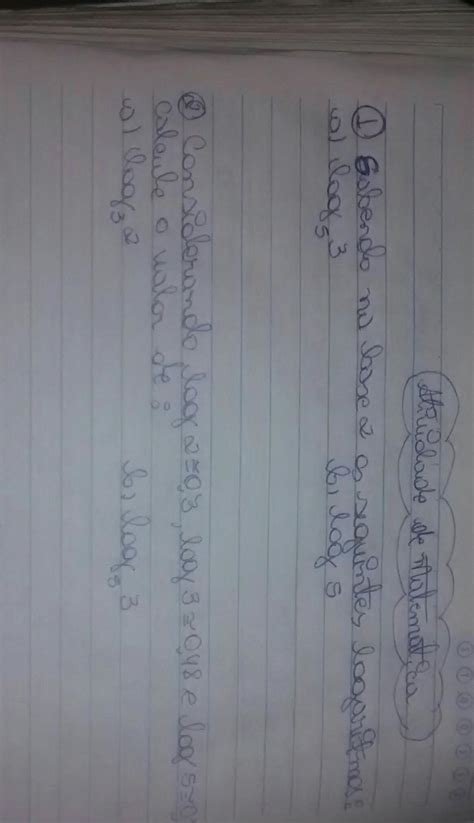 Atividade de Matemática
① Sabendo na base 2 os seguintes logaritmos:
a) log₅3 b) log 5
② Considerando log 2=0,3, log 3=0,48 e log 5=0,
calcule o valor de:
a) log₃2 b) log₅3